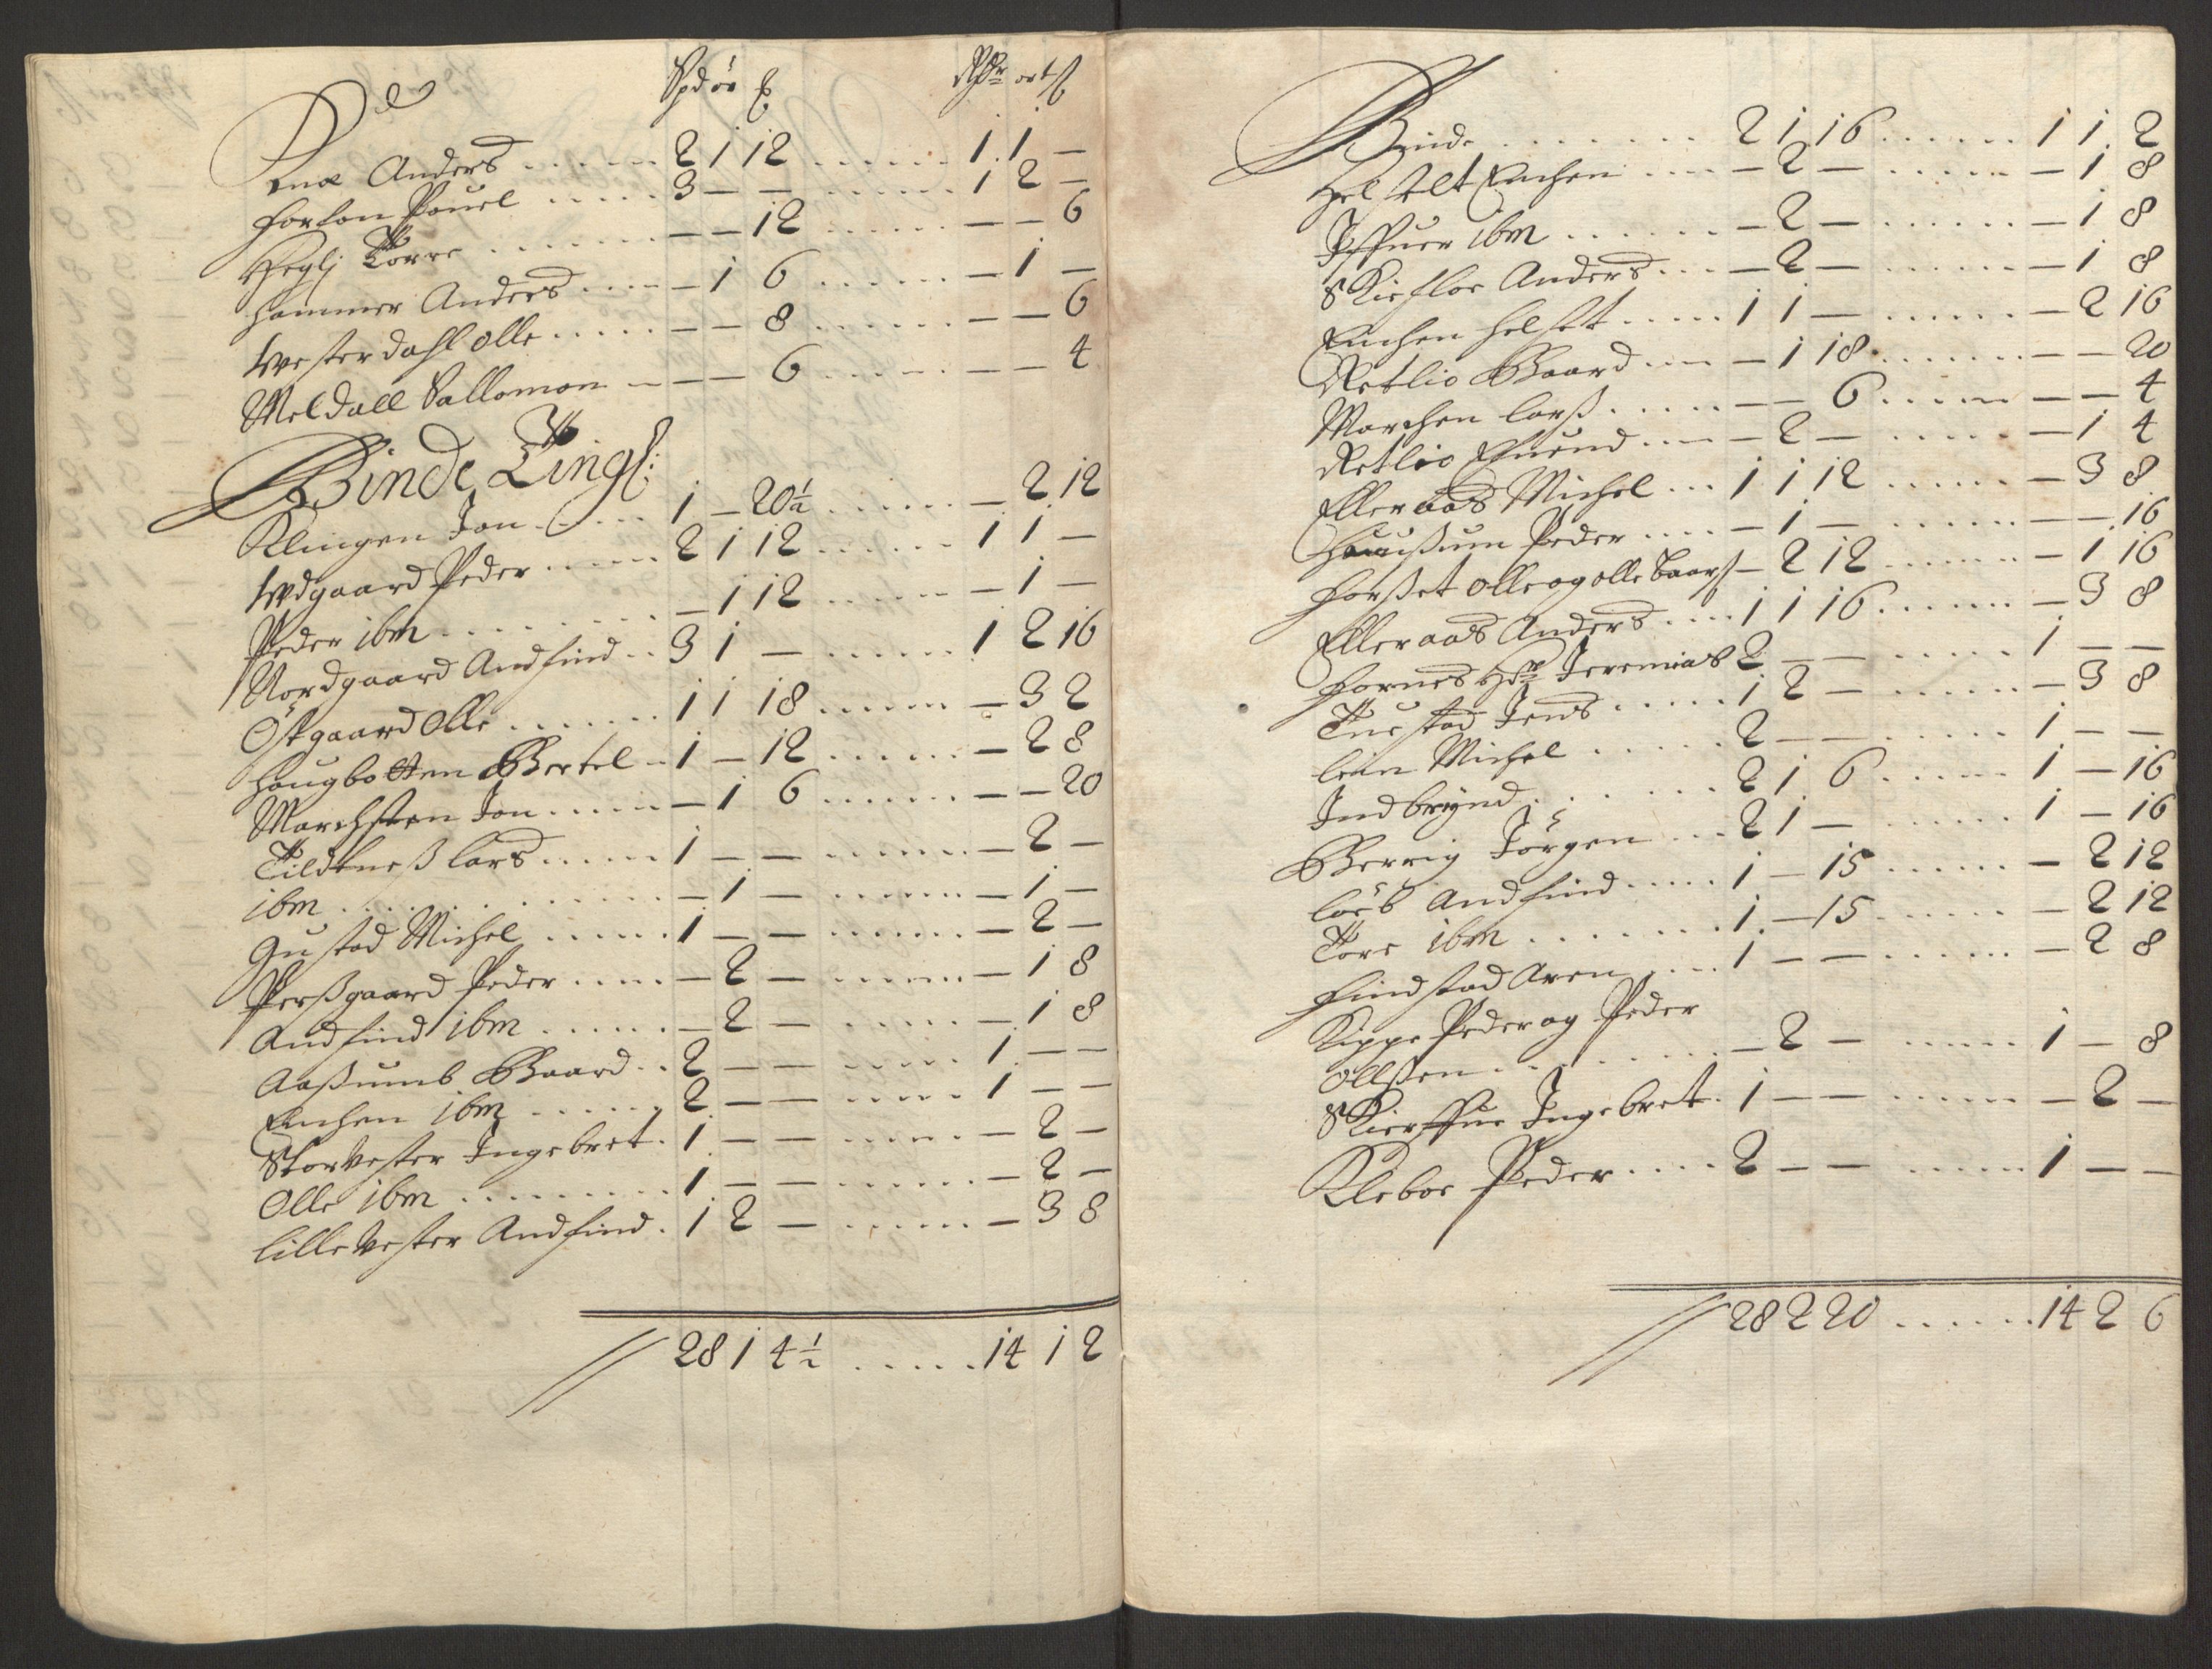 Spd ör ₰ Rdr ort ß
Anders ...... 2 1 12 ...... 1 1 —
forlon Pouel ..... 3 — — ...... 1 2 —
Heglj Torre ....... — — 12 ...... — — 6
hammer Anders .... — 1 6 ...... — 1 —
Westerdahl olle ..... — — 8 ...... — — 6
Meldall Sallomon — — — 6 ...... — — 4
Binde Tingl:
Klingen Jon ..... 1 — 20½ ...... — 2 12
Wdgaard Peder ..... 2 1 12 ...... 1 1 —
Peder ibm ........ — 1 12 ...... — 1 —
Nordgaard Andfind .. 3 1 — ...... 1 2 16
Östgaard Olle ...... 1 1 18 ...... — 3 2
haugbotten Bertel — 1 — 12 ...... — 2 8
Marchsten Jon ..... — 1 6 ...... — — 20
Tildtneß lars ..... 1 — — ...... — 2 —
ibm ............ — 1 — ...... — 1 —
Gustad Michel ..... 1 — — ...... — 2 —
Perßgaard Peder .... — 2 — ...... — 1 8
Andfind ibm ...... — 2 — ...... — 1 8
Aaßumb Baard .. 2 — — ...... 1 — —
Enchen ibm ...... 2 — — ...... 1 — —
Storvester Ingebret . 1 — — ...... — 2 —
Olle ibm ......... 1 — — ...... — 2 —
lillevester Andfind . 1 2 — ...... — 3 8
// 28 1 4½ ..... 14 1 2
Binde ........ 2 1 16 ...... 1 1 2
Helstlt Enchen .... — 2 — ...... — 1 8
Iffuer ibm ...... — 2 — ...... — 1 8
Skiefloe Anders ... — 2 — ...... — 1 8
Enchen helset ..... 1 1 — ...... — 2 16
Retlio Baard ... — 1 18 ...... — — 20
Marchen larß ..... — — 6 ...... — — 4
Retlio Efuend .... — 2 — ...... — 1 4
Elleraas Michel ... 1 1 12 ...... — 3 8
haußum Peder .... — 1 — ...... — — 16
forßet olle og olle baarß — 2 12 ...... — 1 16
Elleraas Anders .... 1 1 16 ...... — 3 8
fornes Hdr Jeremias 2 — — ...... 1 — —
Tuestad Jens ..... 1 2 — ...... — 3 8
lein Michel ..... 2 — — ...... 1 — —
Indbrynd ....... 2 1 6 ...... 1 — 16
Berrig Jörgen ... 2 1 — ...... 1 — 16
loeb Andfind ..... 1 — 15 ...... — 2 12
Tore ibm ....... 1 — 15 ...... — 2 12
findstad Aren .... 1 — — ...... — 2 8
Kippe Peder og Peder
Ollßen ....... — 2 — ...... 1 — 8
Skierffue Ingebret . 1 — — ...... — 2 —
Kleboe Peder .... 2 — — ...... 1 — —
// 28 2 20 ...... 14 2 6